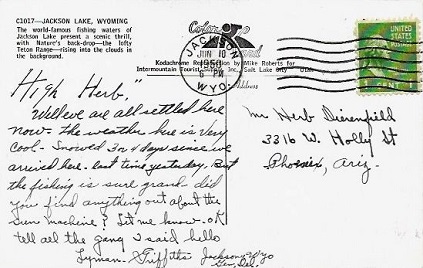 C1017—JACKSON LAKE, WYOMING
The world-famous fishing waters of
Jackson Lake present a scenic thrill,
with Nature's back-drop—the lofty
Teton Range—rising into clouds in
the background.
Kodachrome Reproduction by Mike Roberts for
Intermountain Tourist Supply, Inc., Salt Lake City Utah
JACKSON
JUN 10
1950
6 PM
WYO.
UNITED STATES
1 CENT 1
High Herb,"
Well eve are all settled here
now. the weather here is very
Cool - Snowed 3 or 4 days since we
arrived here. last time yesterday. But
the fishing is sure grand - did
you find anything out about the
machine? Let me know. OK
tell all the gang I said hello
Lyman Griffiths Jackson Wyo
Gen. Del.
Mr Herb Dierenfield
3316 W. Holly St
Phoenix, Ariz.